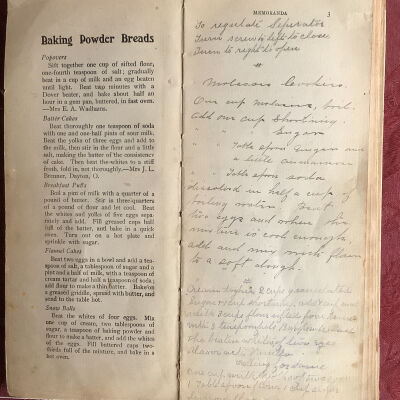 Baking Powder Breads
Popovers
Sift together one cup of sifted flour,
one-fourth teaspoon of salt; gradually
beat in a cup of milk and an egg beaten
until light. Beat two minutes with a
Dover beater, and bake about half an
hour in a gem pan, buttered, in fast oven.
—Mrs E. A. Wadhams.
Butter Cakes
Beat thoroughly one teaspoon of soda
with one and one-half pints of sour milk.
Beat the yolks of three eggs and add to
the milk, then stir in the flour and a little
salt, making the batter of the consistency
of cake. Then beat the whites to a stiff
froth, fold in, not thoroughly.—Mrs J. L.
Brenner, Dayton, O.
Breakfast Puffs
Boil a pint of milk with a quarter of a
pound of butter. Stir in three-quarters
of a pound of flour and let cool. Beat
the whites and yolks of five eggs sepa-
rately and add. Fill greased cups half
full of the batter, and bake in a quick
oven. Turn out on a hot plate and
sprinkle with sugar.
Flannel Cakes
Beat two eggs in a bowl and add a tea-
spoon of salt, a tablespoon of sugar and a
pint and a half of milk, with a teaspoon of
cream tartar and half a teaspoon of soda;
add flour to make a thin batter. Bake on
a greased griddle, spread with butter, and
send to the table hot.
Snow Balls
Beat the whites of four eggs. Mix
one cup of cream, two tablespoons of
sugar, a teaspoon of baking powder and
flour to make a batter, and add the whites
of the eggs. Fill buttered cups two-
thirds full of the mixture, and bake in a
hot oven.
MEMORANDA 3
To regulate Seperator
Turn screw to left to close
Turn to right to open
"
Molasses Cookies.
One cup molasses, boil.
Add one cup shortening.
" " " Sugar
" " Table spoon Ginger and
a little cinnamon
" " Table spoon soda
dissolved in half a cup of
boiling water. Beat
two eggs and when the
mixture is cool enough,
add and mix much flour
to a soft dough.
2 cups granulated
Sugar shortening, add
with 3 cups flour sifted
with 3 teaspoonfuls
the beaten whites of
one cup
1 Table spoon flour